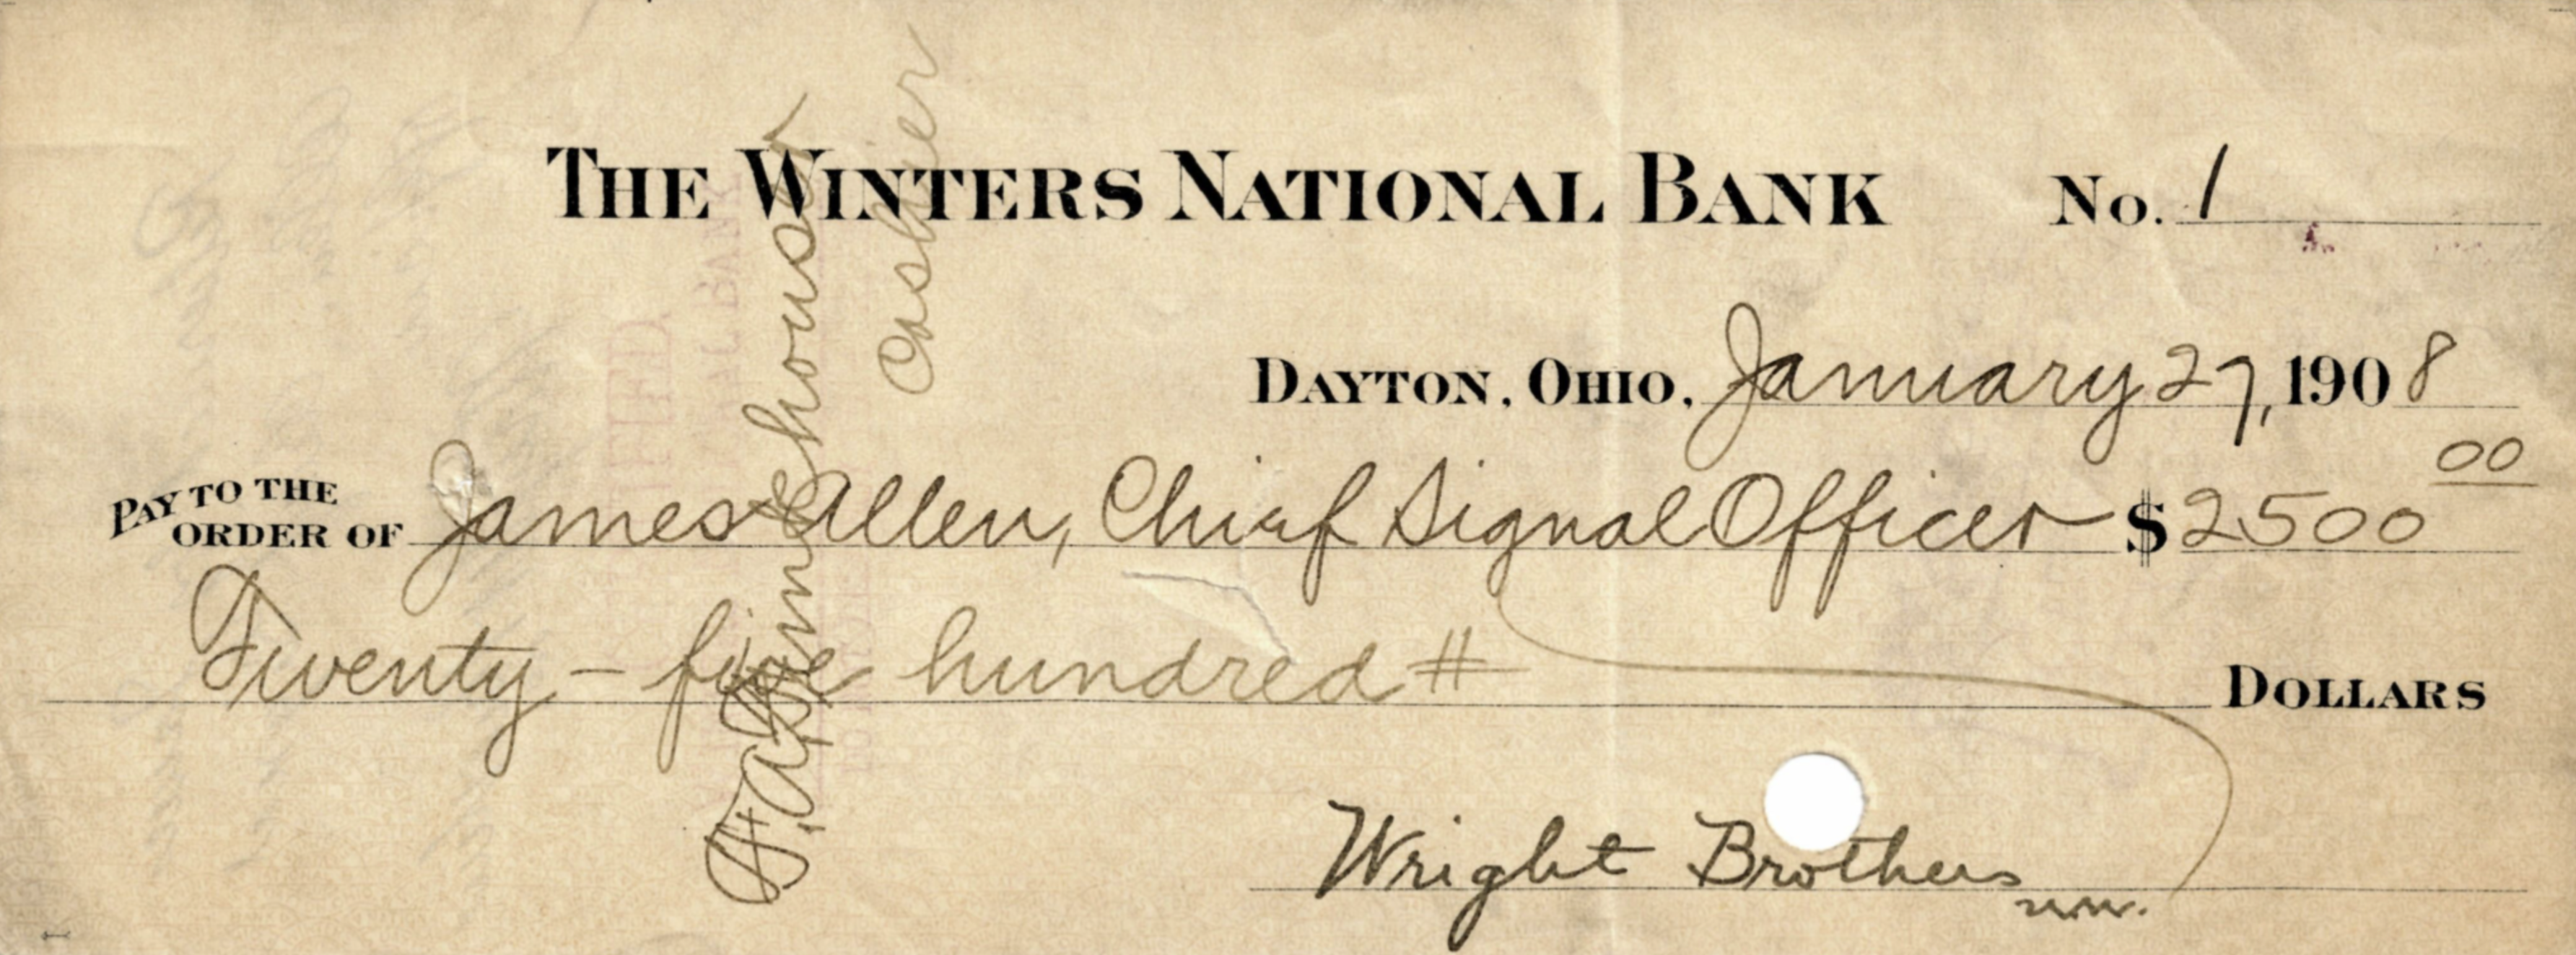 THE WINTERS NATIONAL BANK No. 1
DAYTON, OHIO, January 27, 1908
PAY TO THE ORDER OF James Allen, Chief Signal Officer $2500 00
Twenty-five hundred # DOLLARS
Wright Brothers
Cashier